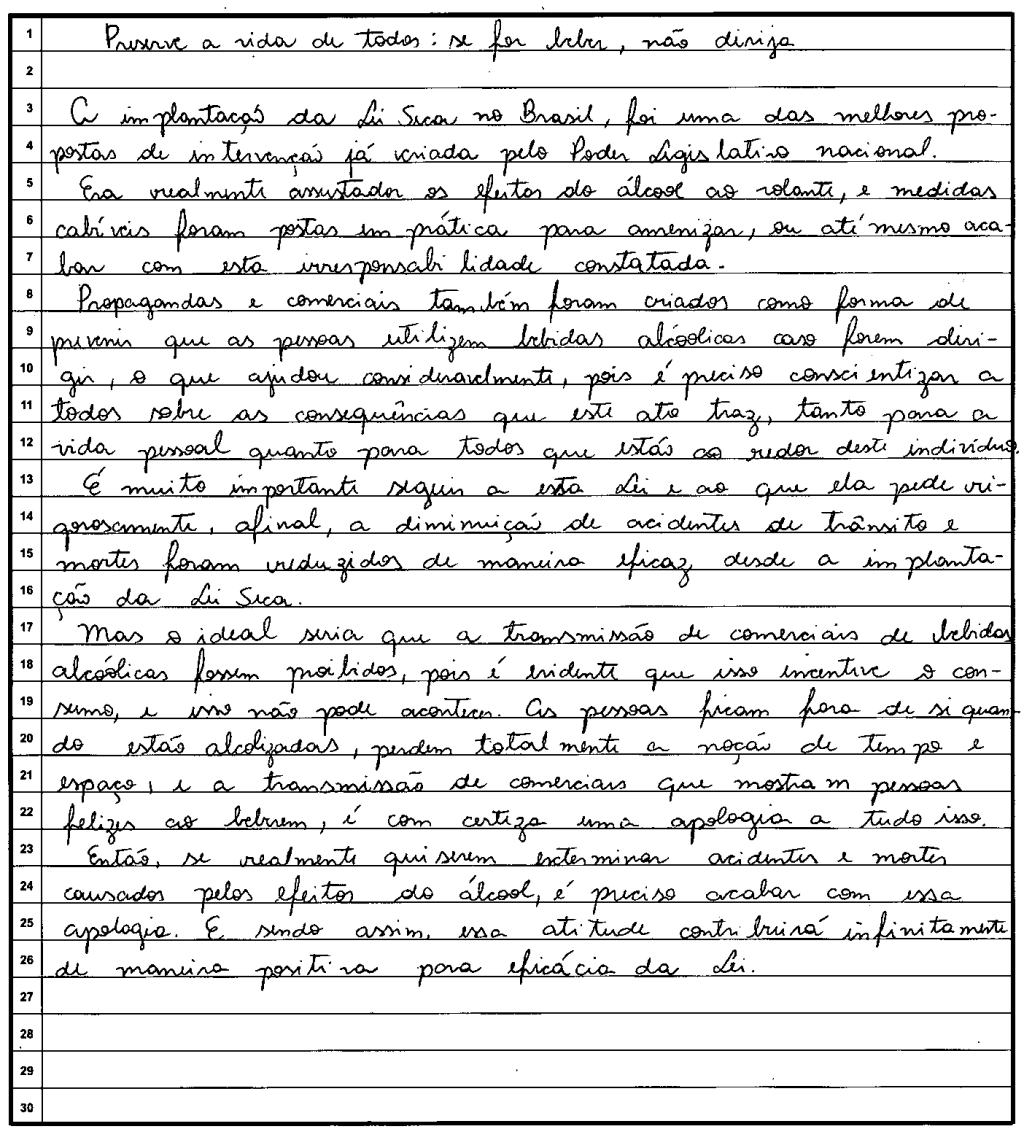 1 Preserve a vida de todos: se for beber, não dirija
2
3 A implantação da Lei Seca no Brasil, foi uma das melhores pro-
4 postas de intervenção já criada pelo Poder Legislativo nacional.
5 Era realmente assustador os efeitos do álcool ao volante, e medidas
6 cabíveis foram postas em prática para amenizar, ou até mesmo aca-
7 bar com esta irresponsabilidade constatada.
8 Propagandas e comerciais também foram criados como forma de
9 previnir que as pessoas utilizem bebidas alcóolicas caso forem diri-
10 gir, o que ajudou consideravelmente, pois é preciso conscientizar a
11 todos sobre as consequências que este ato traz, tanto para a
12 vida pessoal quanto para todos que estão ao redor deste indivíduo.
13 É muito importante seguir a esta Lei e ao que ela pede ri-
14 gorosamente, afinal, a diminuição de acidentes de trânsito e
15 mortes foram reduzidos de maneira eficaz desde a implanta-
16 ção da Lei Seca.
17 Mas o ideal seria que a transmissão de comerciais de bebidas
18 alcoólicas fossem proibidos, pois é evidente que isso incentive o con-
19 sumo, e isso não pode acontecer. As pessoas ficam fora de si quan-
20 do estão alcolizadas, perdem totalmente a noção de tempo e
21 espaço, e a transmissão de comerciais que mostram pessoas
22 felizes ao beberem, é com certeza uma apologia a tudo isso.
23 Então, se realmente quiserem exterminar acidentes e mortes
24 causados pelos efeitos do álcool, é preciso acabar com essa
25 apologia. E sendo assim, essa atitude contribuirá infinitamente
26 de maneira positiva para eficácia da Lei.
27
28
29
30